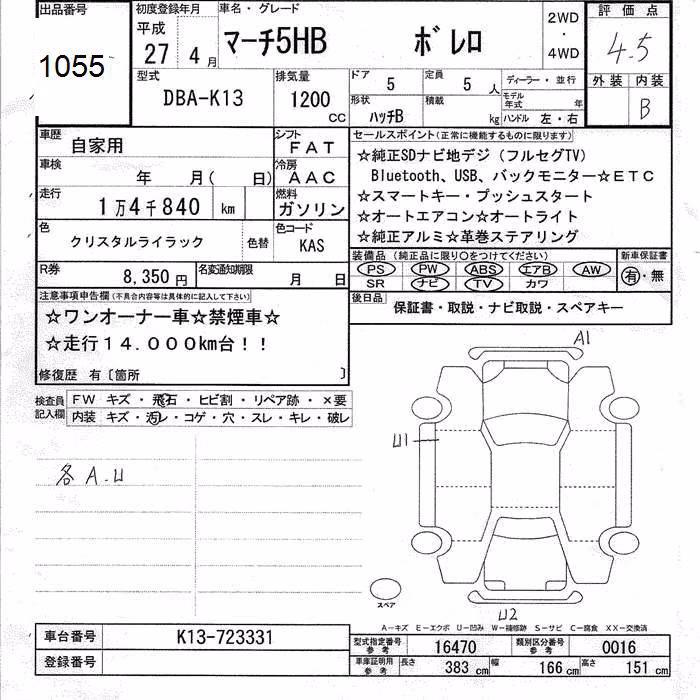 出品番号
1055
初度登録年月
平成
27 4 月
車名・グレード
マーチ5HB ボレロ
2WD
・
4WD
評価点
4.5
型式
DBA-K13
排気量
1200
CC
ドア
5
定員
5 人
ディーラー・並行
外装 内装
B
形状
ハッチB
積載
kg
モデル年式 年
ハンドル 左・右
車歴
自家用
シフト
FAT
セールスポイント(正常に機能するものに限ります)
車検
年 月( 日)
冷房
AAC
☆純正SDナビ地デジ(フルセグTV)
Bluetooth、USB、バックモニター☆ETC
走行
1万4千840 km
燃料
ガソリン
☆スマートキー・プッシュスタート
☆オートエアコン☆オートライト
☆純正アルミ☆革巻ステアリング
色
クリスタルライラック
色替
色コード
KAS
装備品(純正品に限り○をつけてください)
新車保証書
PS PW ABS エアB AW
有・無
SR ナビ TV カワ
R券
8,350円
名変通知期限
月 日
後日品
保証書・取説・ナビ取説・スペアキー
注意事項申告欄(不具合内容等は具体的に記入して下さい)
☆ワンオーナー車☆禁煙車☆
☆走行14.000km台!!
修復歴 有〔箇所 〕
検査員
記入欄
FW キズ・飛石・ヒビ割・リペア跡・×要
内装 キズ・汚レ・コゲ・穴・スレ・キレ・破レ
A1
U1
各A.U
スペア
U2
A-キズ E-エクボ U-凹み W-補修跡 S-サビ C-腐食 XX-交換済
車台番号
K13-723331
登録番号
型式指定番号
参考
16470
類別区分番号
参考
0016
車庫証明用
参考
長さ 383 cm 幅 166 cm 高さ 151 cm